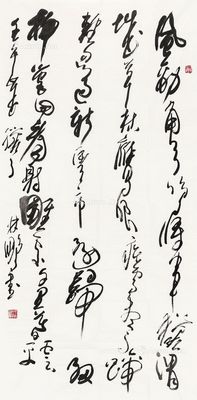 風勁角弓鳴將軍獵渭
城草枯鷹眼疾雪盡馬蹄
輕忽過新豐市還歸細
柳營回看射雕處千里暮雲平
壬午年 林鵬書